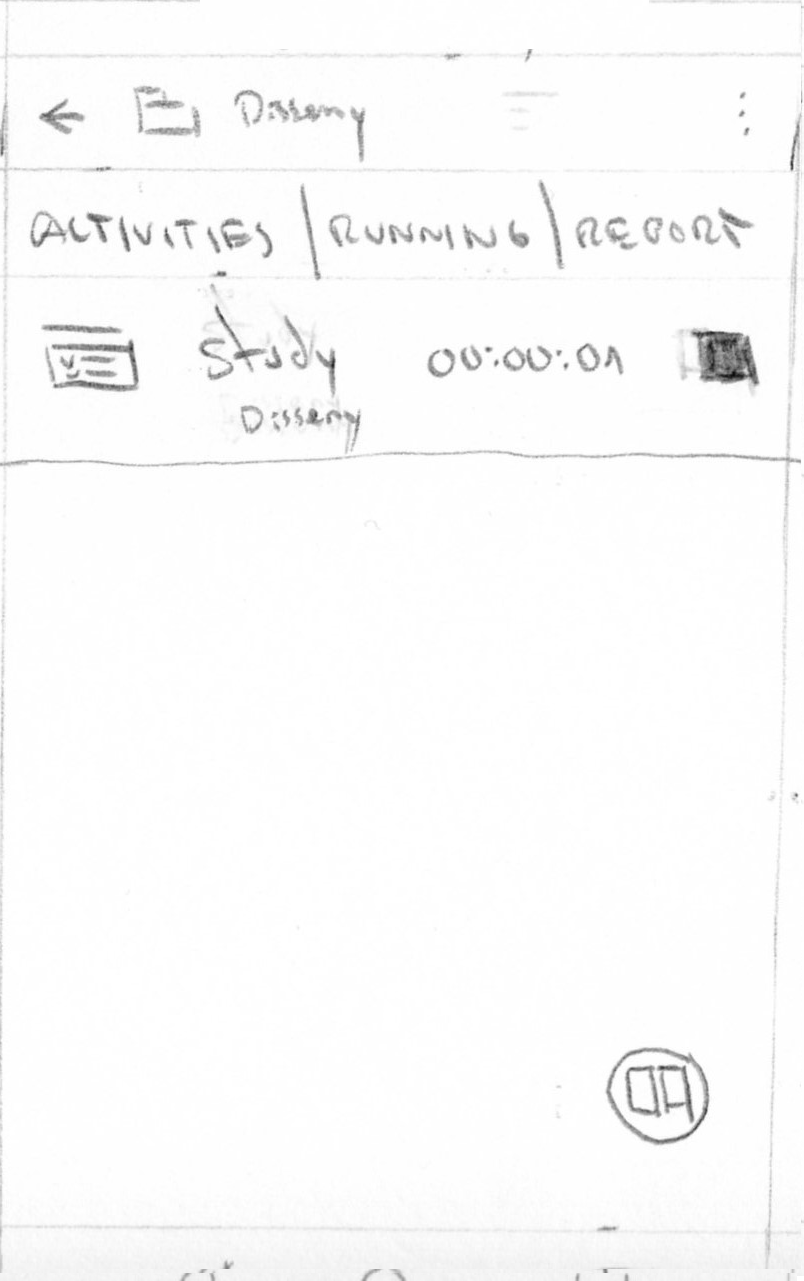 Disseny
ACTIVITIES | RUNNING | REPORT
Study 00:00:01
Disseny